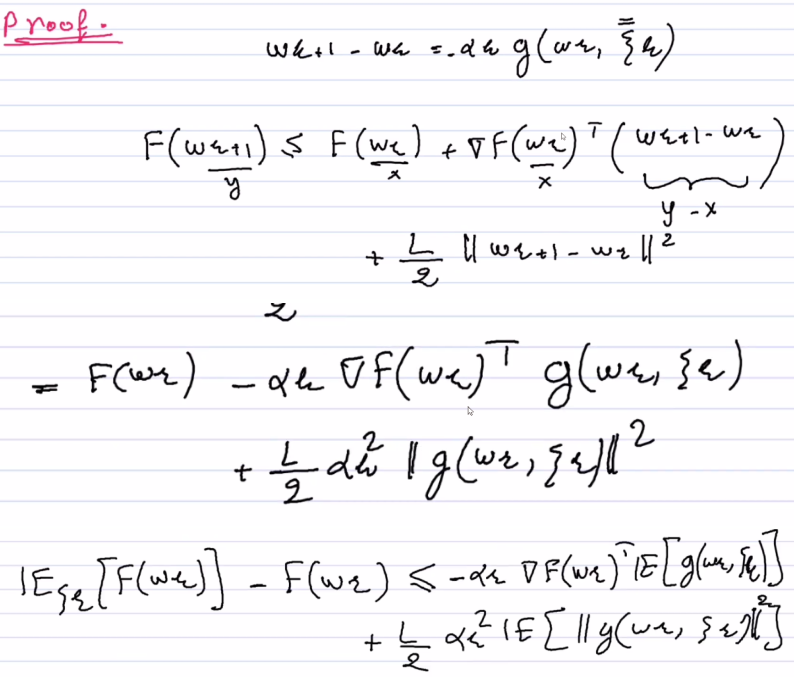 Proof.
w_{k+1} - w_k = -α_k g(w_k, ξ_k)
F(w_{k+1}) ≤ F(w_k) + ∇F(w_k)^T (w_{k+1} - w_k)
y x x y - x
+ L/2 ||w_{k+1} - w_k||^2
= F(w_k) - α_k ∇F(w_k)^T g(w_k, ξ_k)
+ L/2 α_k^2 ||g(w_k, ξ_k)||^2
E_{ξ_k}[F(w_k)] - F(w_k) ≤ -α_k ∇F(w_k)^T E[g(w_k, ξ_k)]
+ L/2 α_k^2 E[||g(w_k, ξ_k)||^2]